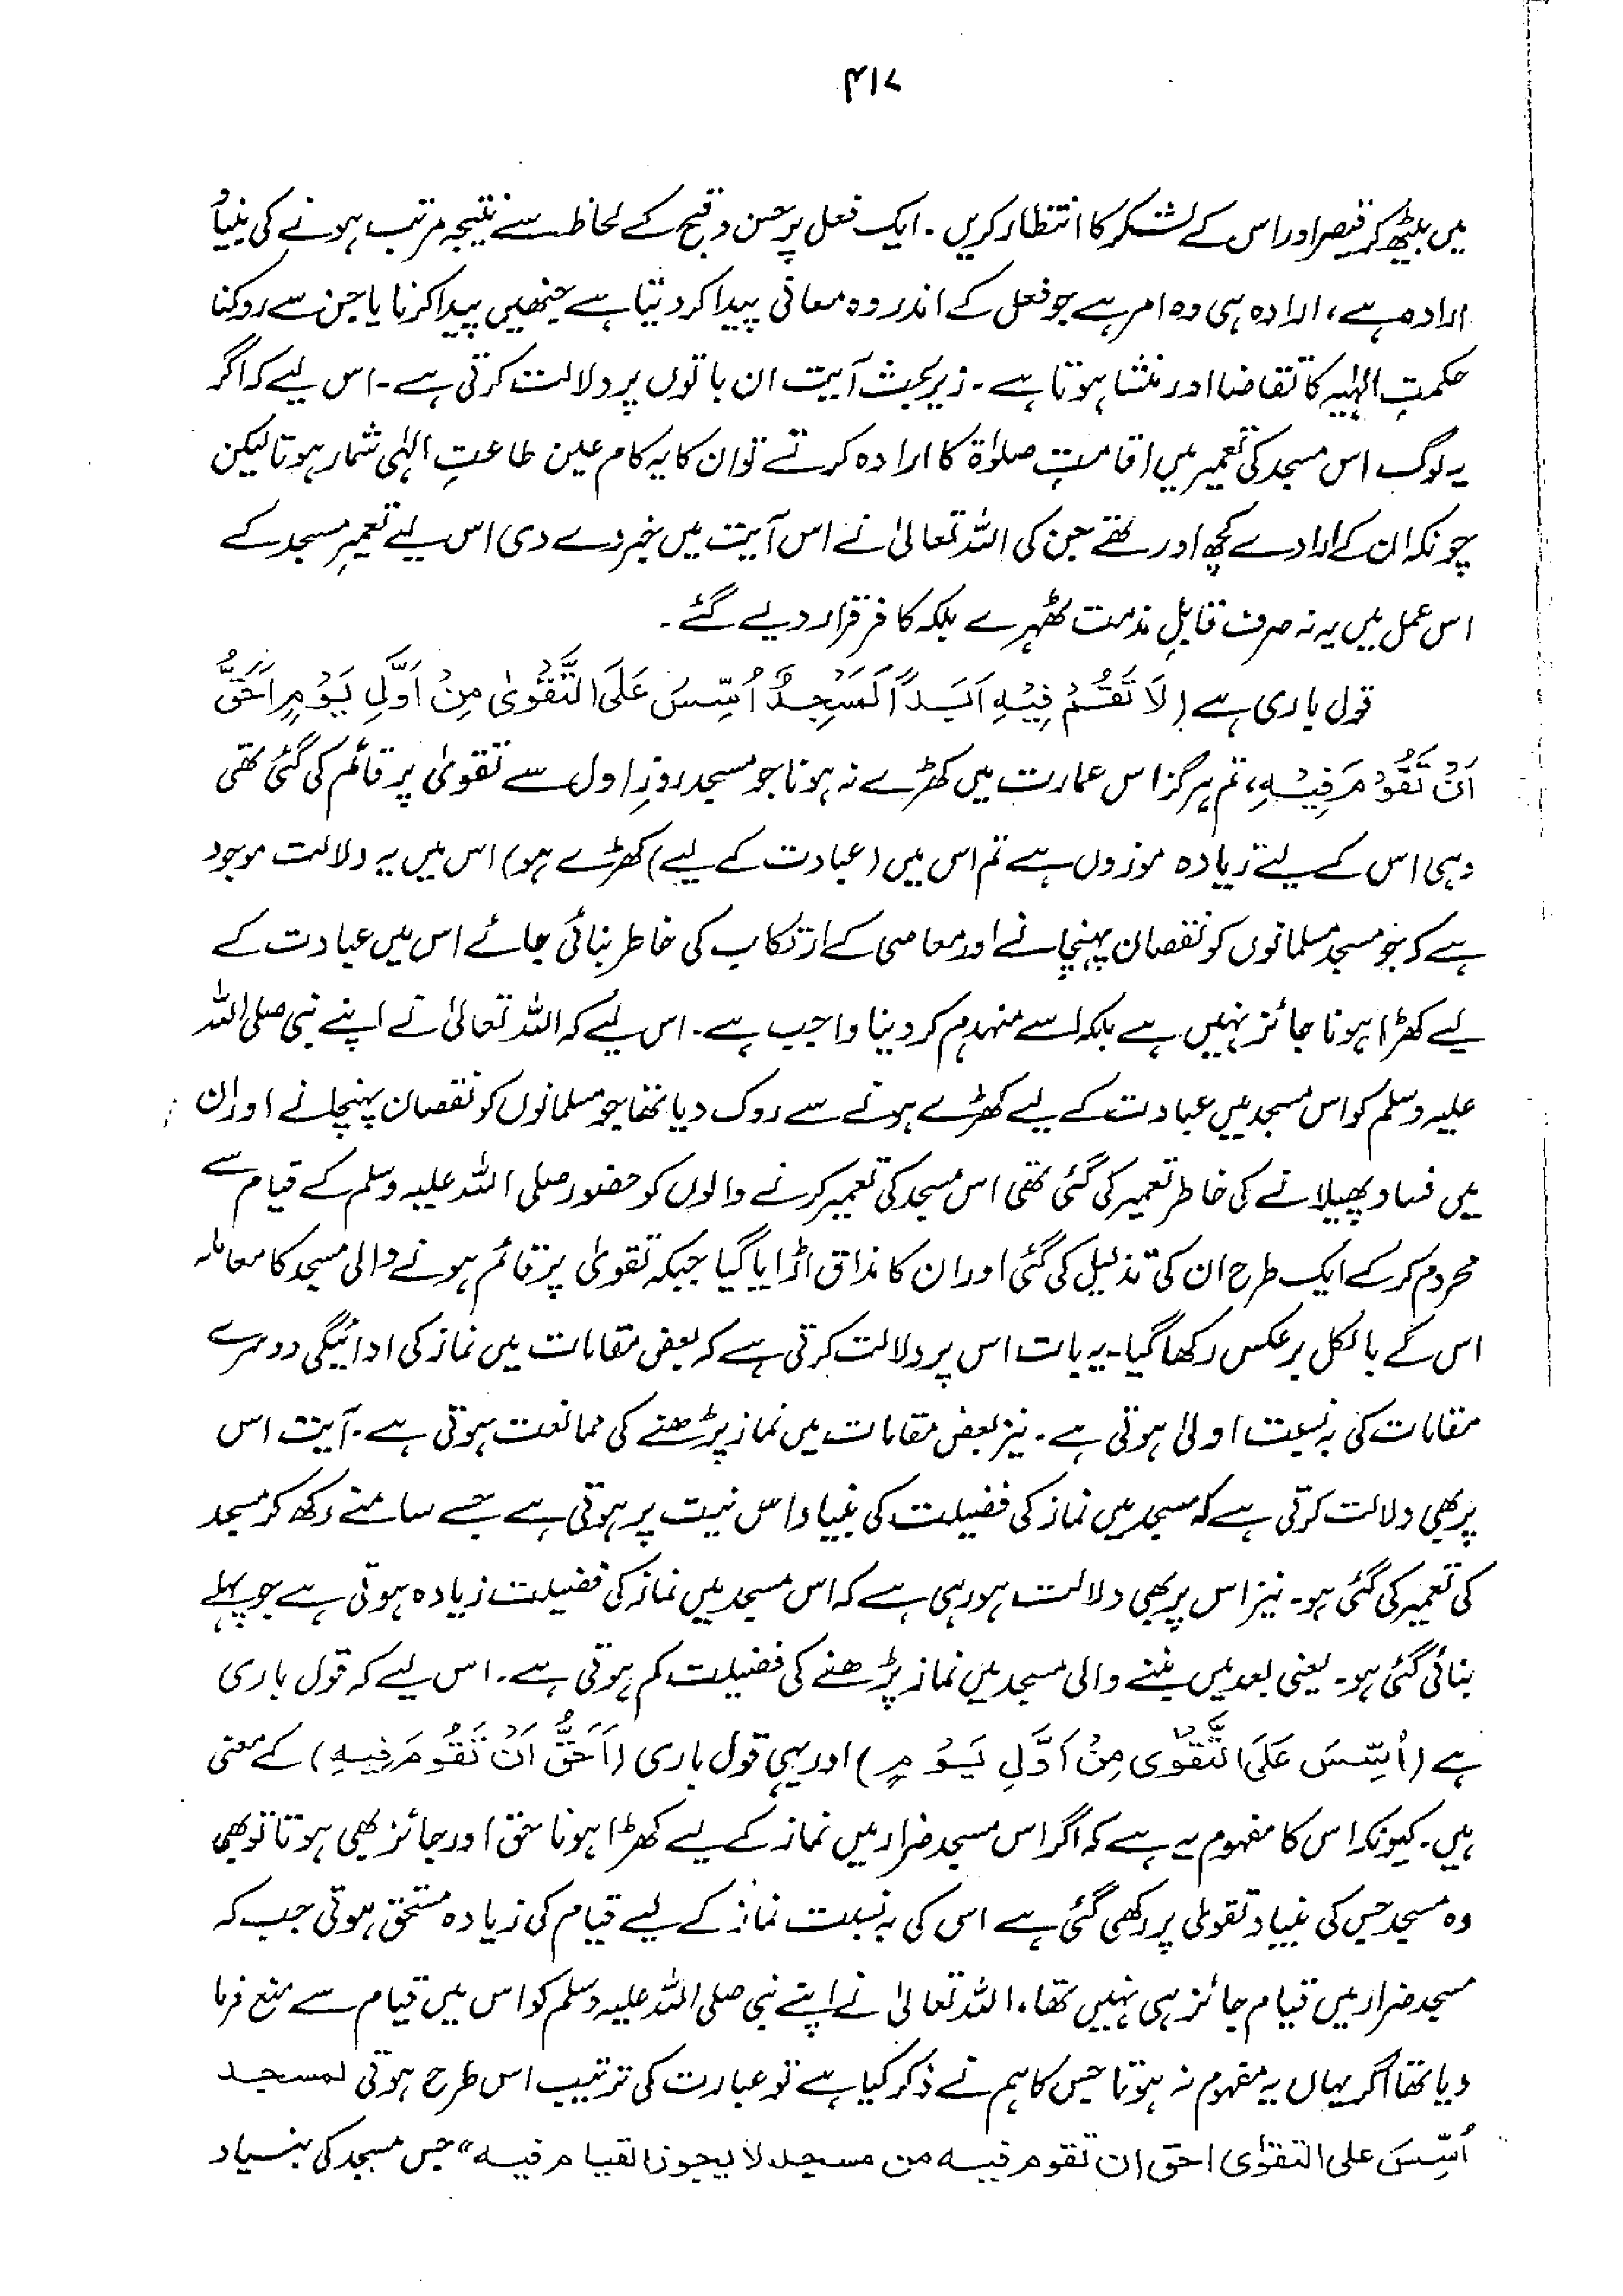 ۴۱۷
میں بیٹھ کر قیصر اور اس کے لشکر کا انتظار کریں۔ ایک فعل پر حسن و قبح کے لحاظ سے نتیجہ مرتب ہونے کی بنیاد
ارادہ ہے، ارادہ ہی وہ امر ہے جو فعل کے اندر وہ معانی پیدا کر دیتا ہے جنھیں پیدا کرنا یا جن سے روکنا
حکمتِ الٰہیہ کا تقاضا اور منشا ہوتا ہے۔ زیر بحث آیت ان باتوں پر دلالت کرتی ہے۔ اس لیے کہ اگر
یہ لوگ اس مسجد کی تعمیر میں اقامتِ صلوٰۃ کا ارادہ کرتے تو ان کا یہ کام عین طاعتِ الٰہی شمار ہوتا لیکن
چونکہ ان کے ارادے کچھ اور تھے جن کی اللہ تعالیٰ نے اس آیت میں خبر دے دی اس لیے تعمیرِ مسجد کے
اس عمل میں یہ نہ صرف قابلِ مذمت ٹھہرے بلکہ کافر قرار دیے گئے۔
قول باری ہے (لَا تَقُمْ فِيْهِ اَبَدًا لَمَسْجِدٌ اُسِّسَ عَلَى التَّقْوٰى مِنْ اَوَّلِ يَوْمٍ اَحَقُّ
اَنْ تَقُوْمَ فِيْهِ، تم ہرگز اس عمارت میں کھڑے نہ ہونا جو مسجد روزِ اول سے تقویٰ پر قائم کی گئی تھی
وہی اس کے لیے زیادہ موزوں ہے تم اس میں (عبادت کے لیے) کھڑے ہو) اس میں یہ دلالت موجود
ہے کہ جو مسجد مسلمانوں کو نقصان پہنچانے اور معاصی کے ارتکاب کی خاطر بنائی جائے اس میں عبادت کے
لیے کھڑا ہونا جائز نہیں ہے بلکہ اسے منہدم کر دینا واجب ہے۔ اس لیے کہ اللہ تعالیٰ نے اپنے نبی صلی اللہ
علیہ وسلم کو اس مسجد میں عبادت کے لیے کھڑے ہونے سے روک دیا تھا جو مسلمانوں کو نقصان پہنچانے اور ان
میں فساد پھیلانے کی خاطر تعمیر کی گئی تھی اس مسجد کی تعمیر کرنے والوں کو حضور صلی اللہ علیہ وسلم کے قیام سے
محروم کر کے ایک طرح ان کی تذلیل کی گئی اور ان کا مذاق اڑایا گیا جبکہ تقویٰ پر قائم ہونے والی مسجد کا معاملہ
اس کے بالکل برعکس رکھا گیا۔ یہ بات اس پر دلالت کرتی ہے کہ بعض مقامات میں نماز کی ادائیگی دوسرے
مقامات کی بہ نسبت اولیٰ ہوتی ہے۔ نیز بعض مقامات میں نماز پڑھنے کی ممانعت ہوتی ہے۔ آیت اس
پر بھی دلالت کرتی ہے کہ مسجد میں نماز کی فضیلت کی بنیاد اس نیت پر ہوتی ہے جسے سامنے رکھ کر مسجد
کی تعمیر کی گئی ہو۔ نیز اس پر بھی دلالت ہو رہی ہے کہ اس مسجد میں نماز کی فضیلت زیادہ ہوتی ہے جو پہلے
بنائی گئی ہو۔ یعنی بعد میں بننے والی مسجد میں نماز پڑھنے کی فضیلت کم ہوتی ہے۔ اس لیے کہ قول باری
ہے (اُسِّسَ عَلَى التَّقْوٰى مِنْ اَوَّلِ يَوْمٍ) اور یہی قول باری (اَحَقُّ اَنْ تَقُوْمَ فِيهِ) کے معنی
ہیں۔ کیونکہ اس کا مفہوم یہ ہے کہ اگر اس مسجد ضرار میں نماز کے لیے کھڑا ہونا حق اور جائز بھی ہوتا تو بھی
وہ مسجد جس کی بنیاد تقویٰ پر رکھی گئی ہے اس کی بہ نسبت نماز کے لیے قیام کی زیادہ مستحق ہوتی جب کہ
مسجد ضرار میں قیام جائز ہی نہیں تھا، اللہ تعالیٰ نے اپنے نبی صلی اللہ علیہ وسلم کو اس میں قیام سے منع فرما
دیا تھا اگر یہاں یہ مفہوم نہ ہوتا جس کا ہم نے ذکر کیا ہے تو عبارت کی ترتیب اس طرح ہوتی لمسجد
اُسِّسَ على التقوٰى احق ان تقوم فيه من مسجد لا يجوز القيام فيه" جس مسجد کی بنیاد